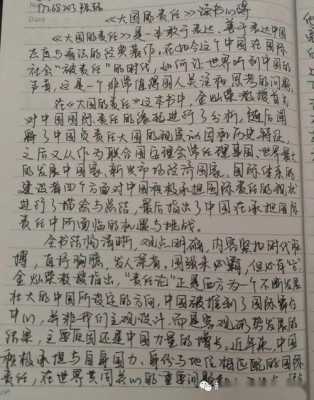 《大国的责任》读书心得
《大国的责任》是一本敢于表达、善于表达中
国在国际
社会"被责任"的时代，如何让世界听到中国的
声音，这是一个非常值得国人关注和思考的问题。
在《大国的责任》这本书中，金灿荣教授首先
对中国国际责任的缘起进行了分析，随后回
顾了中国负责任大国的
之后又从作为联合国安理会常任理事国、世界最大
的发展中国家、新兴市场经济国家、国际体系的
建设者四个方面对中国积极承担国际责任的现状
进行了描绘与总结，最后指出了中国在承担国际
责任中所面临的机遇与挑战。
全书结构清晰，观点明确，内容紧扣时代脉
搏，直抒胸臆，发人深省。国强未必霸，但必有
金灿荣教授指出，"责任论"正是西方为一个不断发展
壮大的中国所设定的方向，中国被推到了国际舞台
中心，并非我们主观设计，而是客观形势发展的
结果，主要原因还是中国力量的增长。近年来，中国
积极承担与自身国力、身份与地位相匹配的国际
责任，在世界共同关心的重要问题